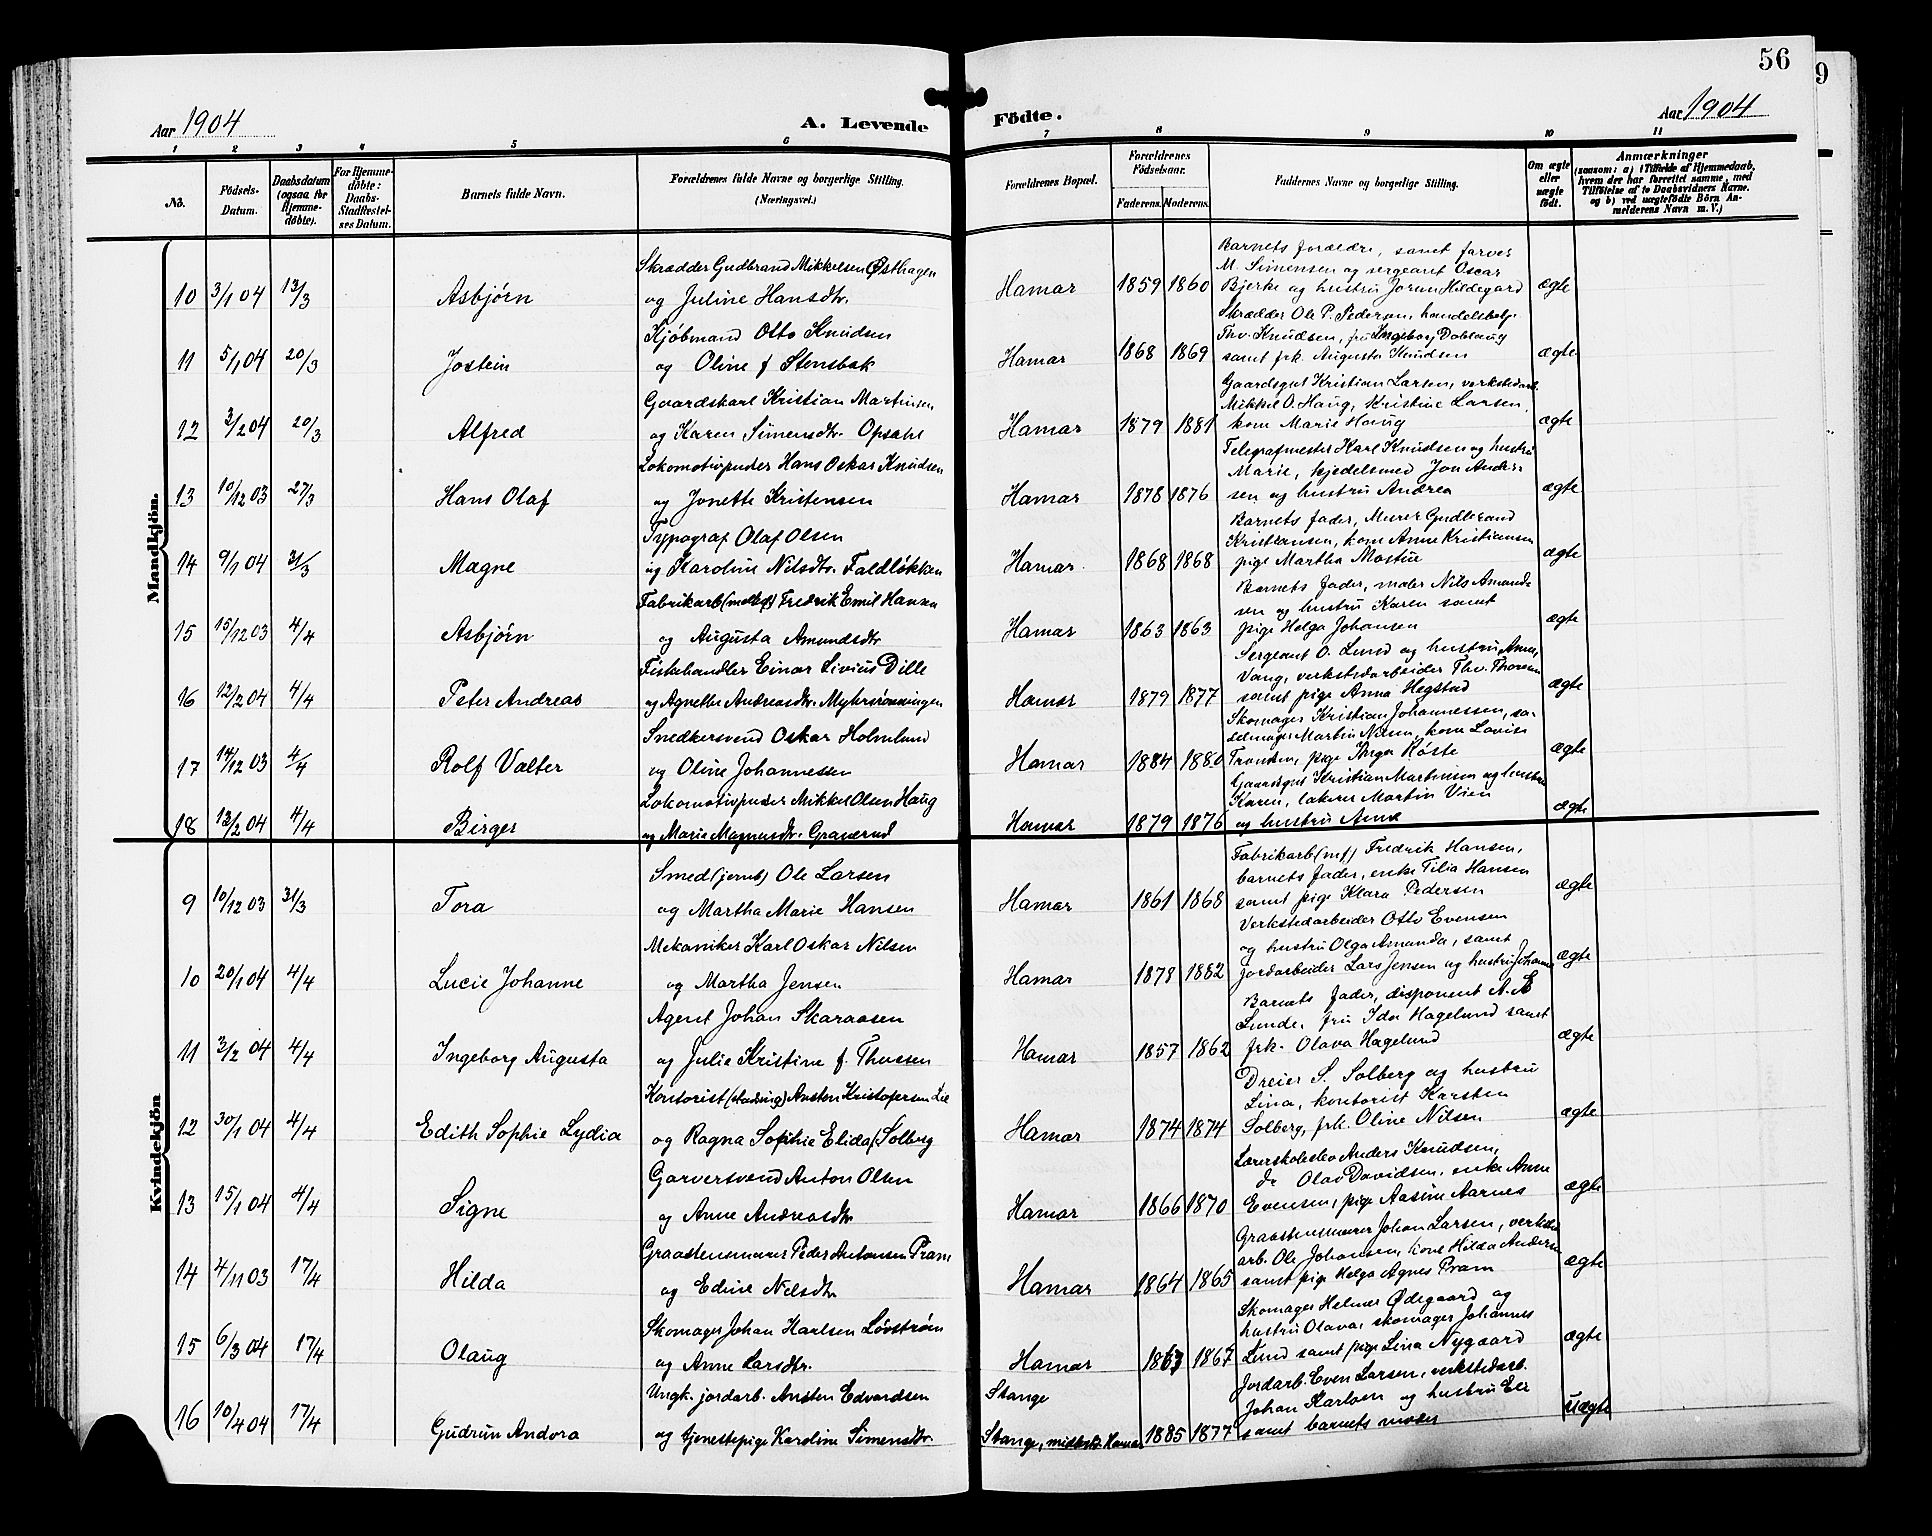 56
9
Aar 1904
A. Levende
Födte.
Aar 1904
1 2 3 4 5 6 7 8 9 10 11
No.
Födsels-
Datum.
Daabsdatum
(ogsaa for
Hjemme-
döbte).
For Hjemme-
döbte:
Daabs-
Stadfestel-
ses Datum.
Barnets fulde Navn.
Forældrenes fulde Navne og borgerlige Stilling.
(Næringsvei.)
Forældrenes Bopæl.
Forældrenes
Födselsaar.
Faderens. Moderens.
Faddernes Navne og borgerlige Stilling.
Om ægte
eller
uægte
födt.
Anmærkninger
(saasom: a) i Tilfælde af Hjemmedaab,
hvem der har forrettet samme, med
Tilföielse af to Daabsvidners Navne.
og b) ved uægtefödte Börn An-
melderens Navn m. V.)
Mandkjön.
Skrædder Gudbrand Mikkelsen Østhagen
10 3/1 04 13/3 Asbjörn og Juline Hansdtr. Hamar 1859 1860 ægte
Barnets forældre, samt farver
M. Simensen og sergeant Oscar
Bjerke og hustru Joran Hildegard
Kjöbmand Otto Knudsen
11 5/1 04 20/3 Jostein og Oline f Stensbak Hamar 1868 1869 ægte
Skrædder Ole P. Pedersen, handelsbetj.
Thv. Knudsen, fru Ingeborg Dahlaug
samt frk. Augusta Knudsen
Gaardskarl Kristian Martinsen
12 3/2 04 20/3 Alfred og Karen Simensdtr. Opsahl Hamar 1879 1881 ægte
Gaardsgut Kristian Larsen, verkstedarb.
Mikkel O. Haug, Kristine Larsen,
kone Marie Haug
Lokomotivpudser Hans Oskar Knudsen
13 10/12 03 27/3 Hans Olaf og Jonette Kristensen Hamar 1878 1876 ægte
Telegrafmester Karl Knudsen og hustru
Marie, kjedelsmed Jon Ander-
sen og hustru Andrea
Typograf Olaf Olsen
14 9/1 04 31/3 Magne og Karoline Nilsdtr. Faldløkken Hamar 1868 1868 ægte
Barnets fader, Murer Gudbrand
Kristiansen, kone Anne Kristiansen
pige Martha Mostue
Fabrikarb (melkef) Fredrik Emil Hansen
15 15/12 03 4/4 Asbjørn og Augusta Amundsdtr Hamar 1863 1863 ægte
Barnets fader, maler Nils Amund-
sen og hustru Karen samt
pige Helga Johansen
Fiskehandler Einar Livius Dille
16 12/2 04 4/4 Peter Andreas og Agnethe Andreasdtr. Hamar 1879 1877 ægte
Sergeant O. Lund og hustru Anna,
Vang, verkstedarbeider Thv. Thoresen
samt pige Anna Hegstad
Snedkersvend Oskar Holmlund
17 14/12 03 4/4 Rolf Valter og Oline Johannessen Hamar 1884 1880 ægte
Skomager Kristian Johannessen, sa-
delmager Martin Nilsen, kone Lovise
Tronsen, pige Inga Röste
Lokomotivpudser Mikkel Olsen Haug
18 13/2 04 4/4 Birger og Marie Magnusdtr. Graverud Hamar 1879 1876 ægte
Gaardsgut Kristian Martinsen og hustru
Karen, lakerer Martin Vien
og hustru Anna
Kvindekjön
Smed (jernb) Ole Larsen
9 10/12 03 31/3 Tora og Martha Marie Hansen Hamar 1861 1868 ægte
Fabrikarb (mf) Fredrik Hansen,
barnets fader, enke Tilia Hansen
samt pige Klara Pedersen
Mekaniker Karl Oskar Nilsen
10 20/1 04 4/4 Lucie Johanne og Martha Jensen Hamar 1878 1882 ægte
Verkstedarbeider Otto Evensen
og hustru Olga Amanda, samt
jordarbeider Lars Jensen og hustru Johanne
Agent Johan Skaraasen
11 3/2 04 4/4 Ingeborg Augusta og Julie Kristine f. Thuesen Hamar 1857 1862 ægte
Barnets fader, disponent A. A
Lunde, fru Ida Hagelund samt
frk. Olava Hagelund
Kontorist Austen Kristofersen Lie
12 30/1 04 4/4 Edith Sophie Lydia og Ragna Sophie Elida f Solberg Hamar 1874 1874 ægte
Dreier S. Solberg og hustru
Lina, kontorist Karsten
Solberg, frk. Oline Nilsen
Garversvend Anton Olsen
13 15/1 04 4/4 Signe og Anne Andreasdtr Hamar 1866 1870 ægte
Lærerskoleelev Anders Knudsen,
do Olav Davidsen, enke Anne
Evensen, pige Aasine Aarnes
Graastensmurer Peder Antonsen Pram
14 4/11 03 17/4 Hilda og Edine Nilsdtr Hamar 1864 1865 ægte
Graastensmurer Johan Larsen, verksted
arb. Ole Johansen, kone Hilda Andersen
samt pige Helga Agnes Pram
Skomager Johan Karlsen Lövström
15 6/3 04 17/4 Olaug og Anne Larsdtr. Hamar 1863 1867 ægte
Skomager Helmer Ødegaard og
hustru Olava, skomager Johannes
Lund samt pige Lina Nygaard
Ungk. jordarb. Austen Edvardsen Stange
16 10/4 04 17/4 Gudrun Andora og tjenestepige Karoline Simensdtr. Stange, midlertid. Hamar 1885 1877 uægte
Jordarb. Even Larsen, verkstedarb.
Johan Karlsen og hustru Eli
samt barnets moder